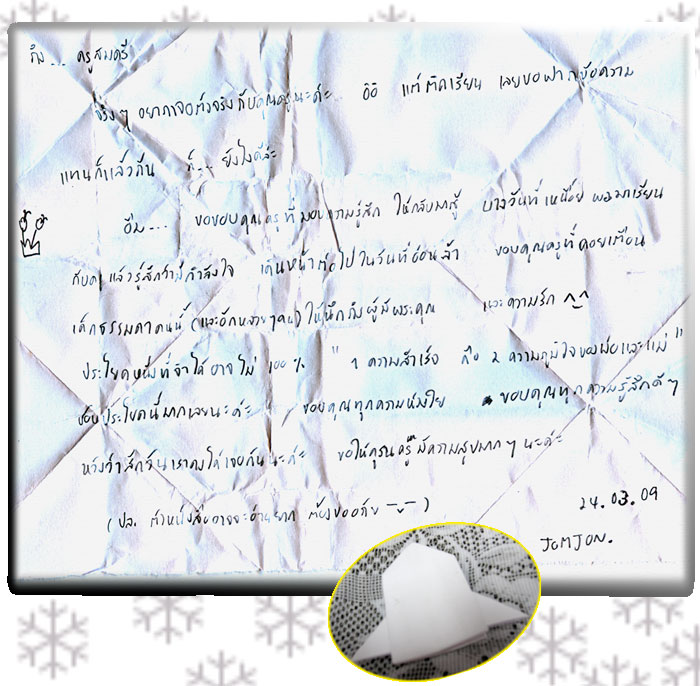 ถึง... ครูสมศรี
จริงๆ อยากเจอตัวจริงกับคุณครูนะค่ะ อิอิ แต่ติดเรียน เลยขอฝากข้อความ
แทนก็แล้วกัน ก็... ยังไงดีล่ะ
อืม... ขอขอบคุณครูที่มอบความรู้สึก ให้กลับมาสู้ บางวันที่เหนื่อย พอมาเรียน
แล้วรู้สึกว่ามีกำลังใจ เดินหน้าต่อไปในวันที่อ่อนล้า ขอบคุณครูที่คอยเตือน
เด็กธรรมดาคนนี้ (และอีกหลายๆคน) ให้นึกถึงผู้มีพระคุณ และความรัก ^_^
ประโยคหนึ่งที่จำได้อาจไม่ 100 % " 1 ความสำเร็จ คือ 2 ความภูมิใจของพ่อและแม่ "
ชอบประโยคนี้มากเลยนะค่ะ ขอบคุณทุกความห่วงใย ขอบคุณทุกความรู้สึกดีๆ
หวังว่าสักวันเราคงได้เจอกันนะค่ะ ขอให้คุณครูมีความสุขมากๆ นะค่ะ
(ปล. ตัวหนังสืออาจจะอ่านยาก ต้องขออภัย -_-)
24.03.09
JOMJON.